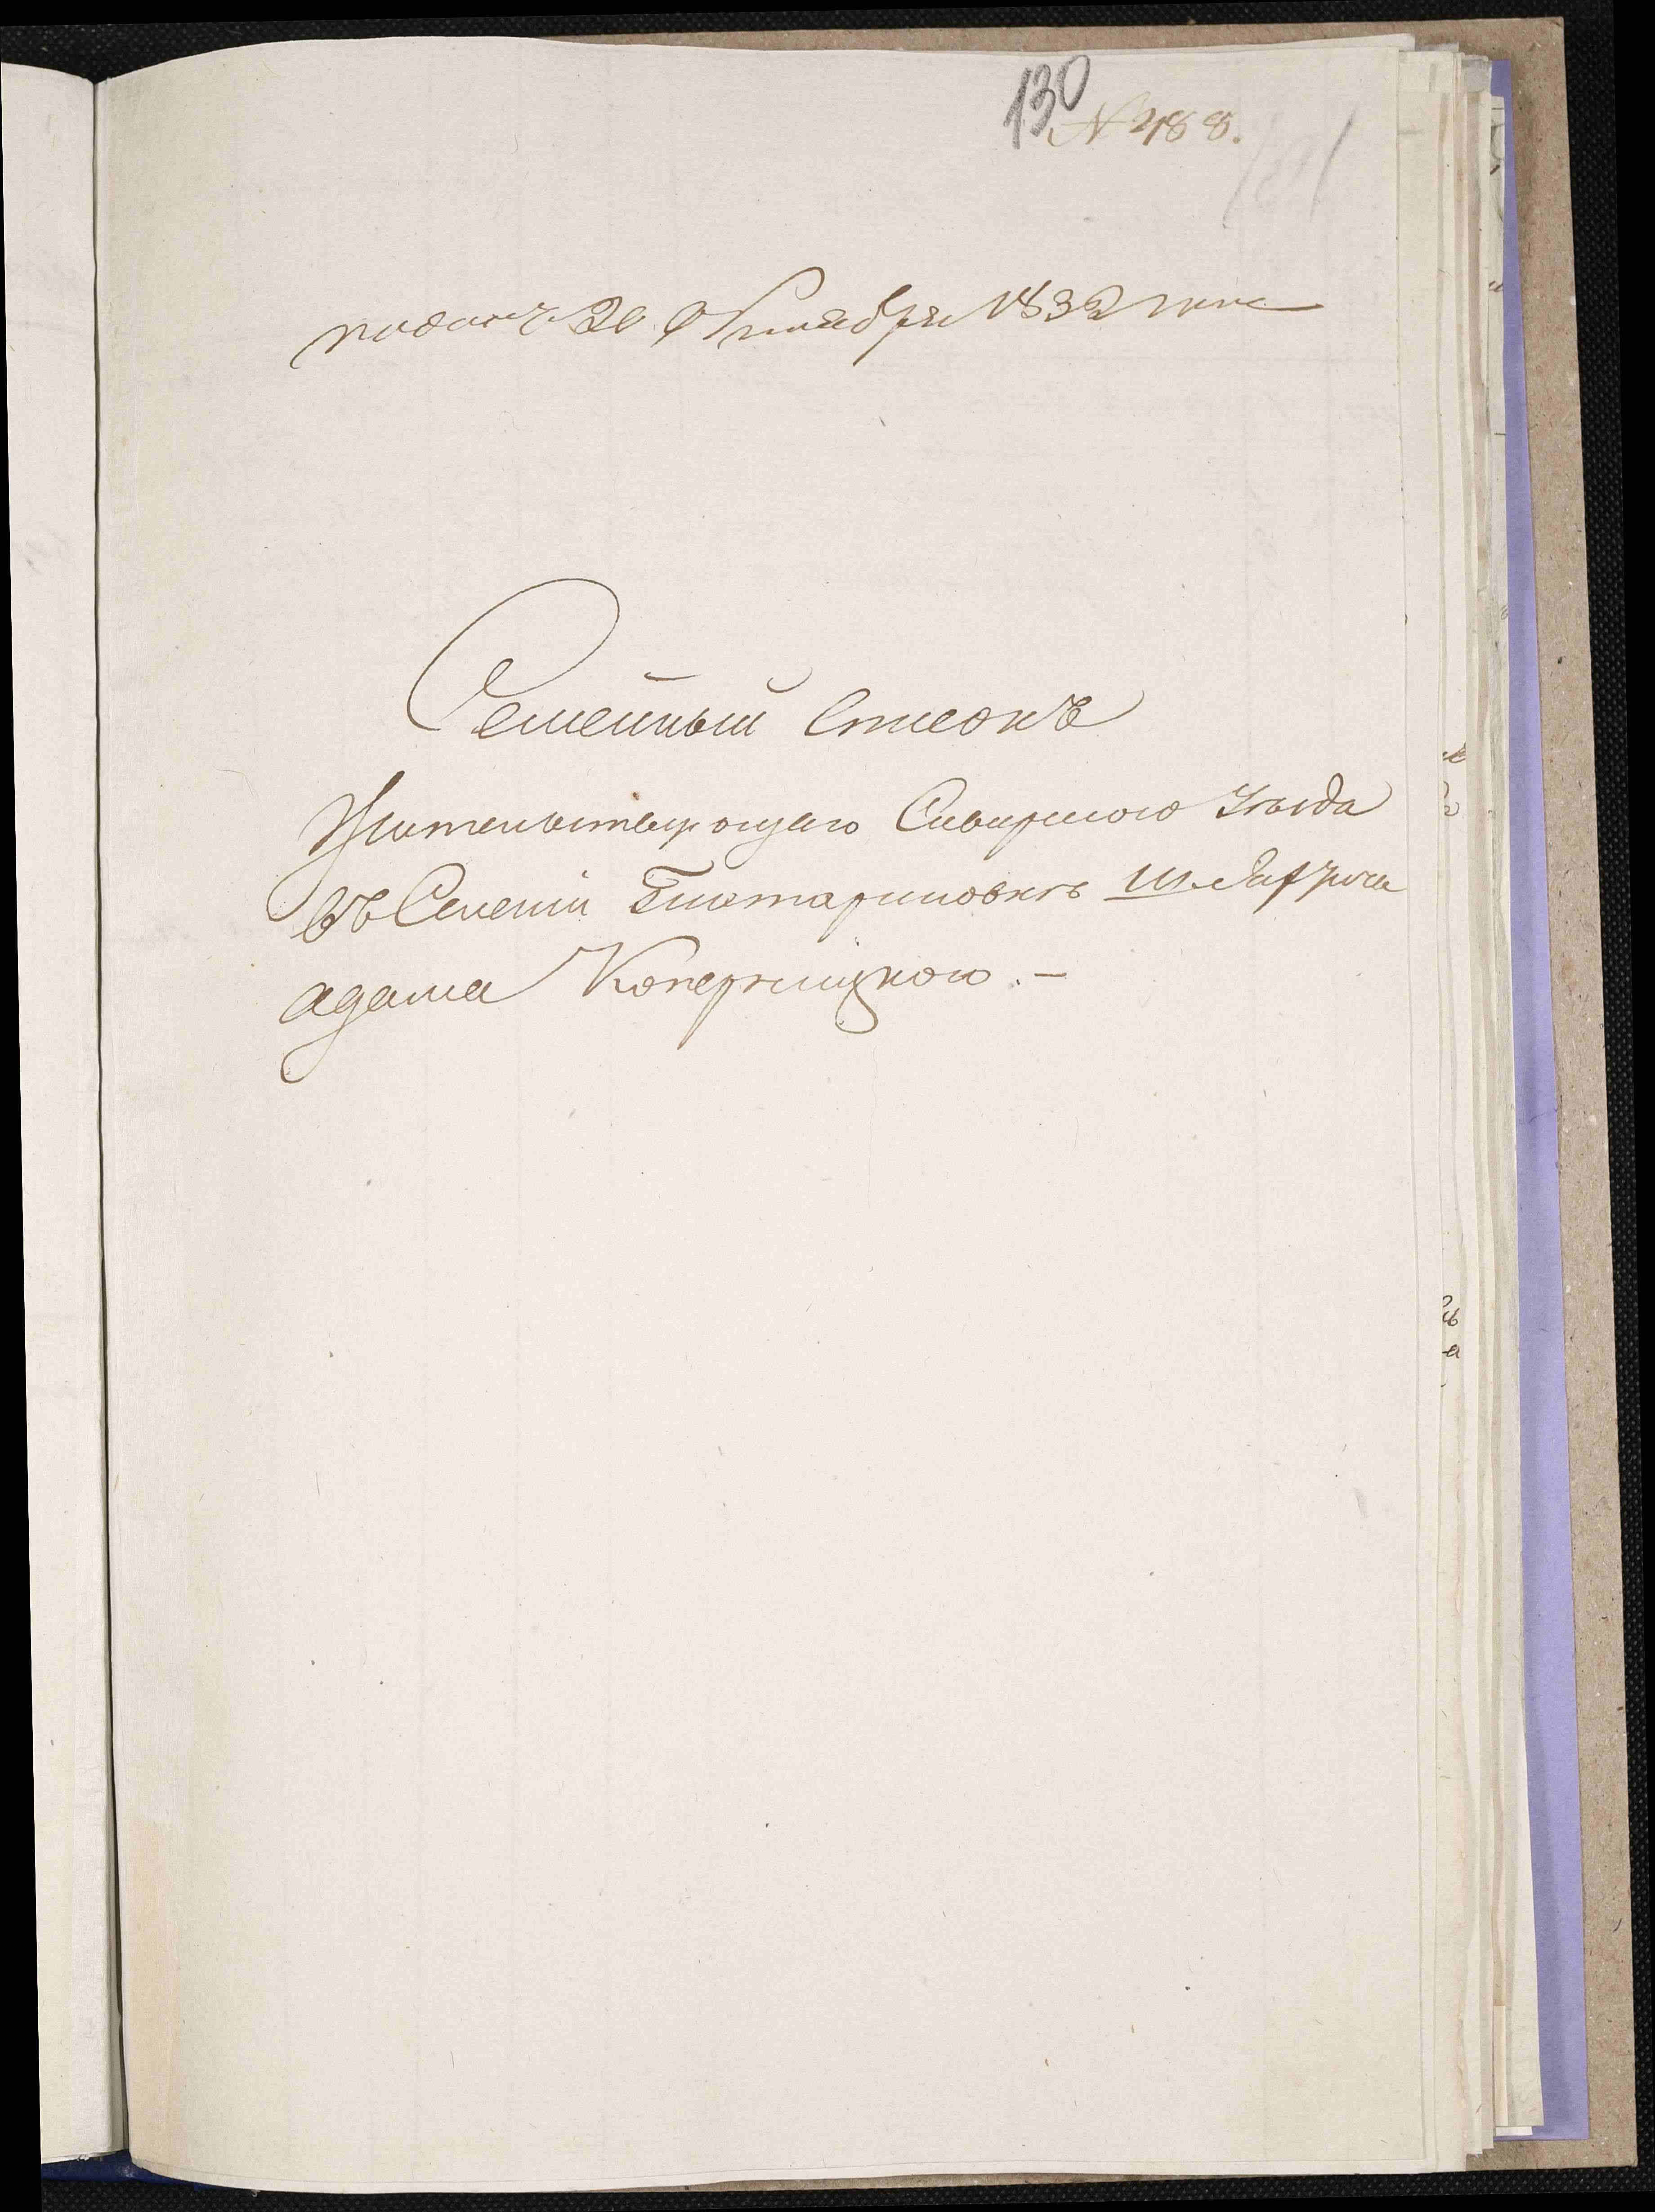 130
N 488.
подан 20 Октября 1832 года
Семейный Списокъ
Жительствующаго Сквирского Уѣзда
въ Селении шляхтича
адама Коперницкого. –